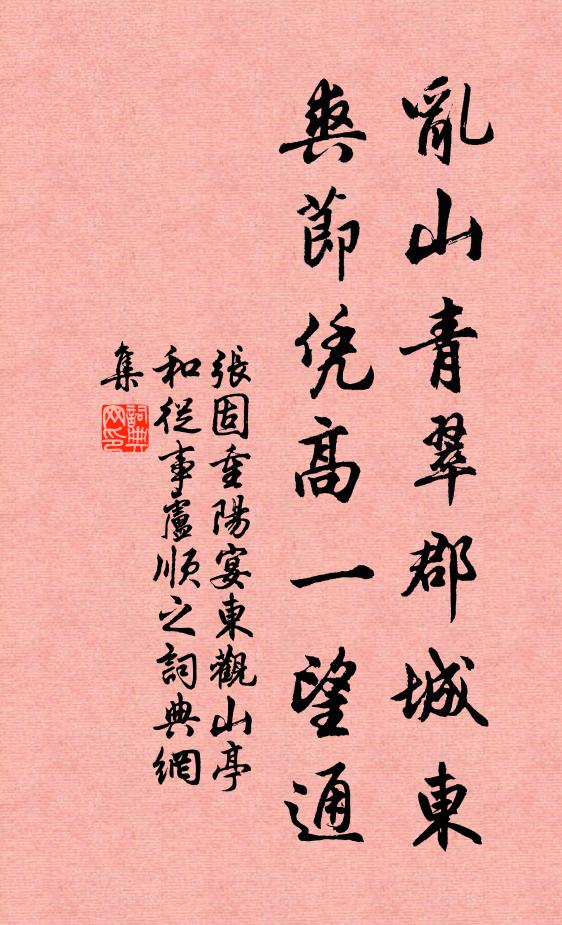 亂山青翠郡城東
爽節凭高一望通
張固重陽宴東觀山亭
和從事盧順之詞典網
集
詞典
网印